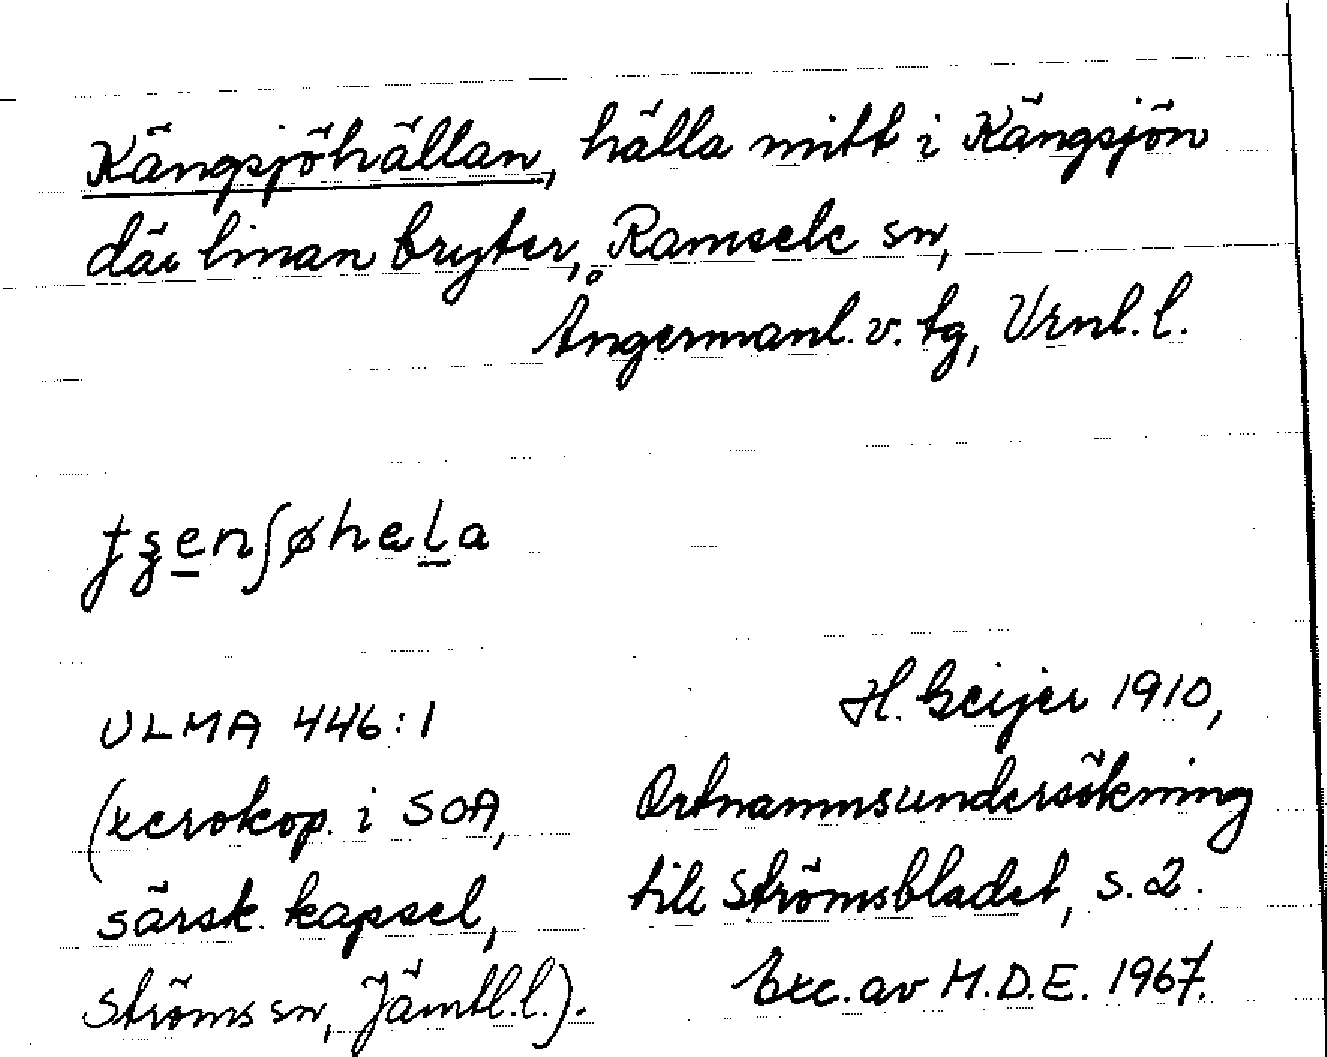 Kängsjöhällan, hälla mitt i Kängsjön
där linan bryter, Ramsele sn,
Ångermanl. v. tg, Vrnl. l.
ƫʂenʃøhela
ULMA 446:1
(xerokop. i SOA,
särsk. kapsel,
Ströms sn, Jämtl. l.).
H. Geijer 1910,
Ortnamnsundersökning
till Strömsbladet, s. 2.
Exc. av M.D.E. 1967.